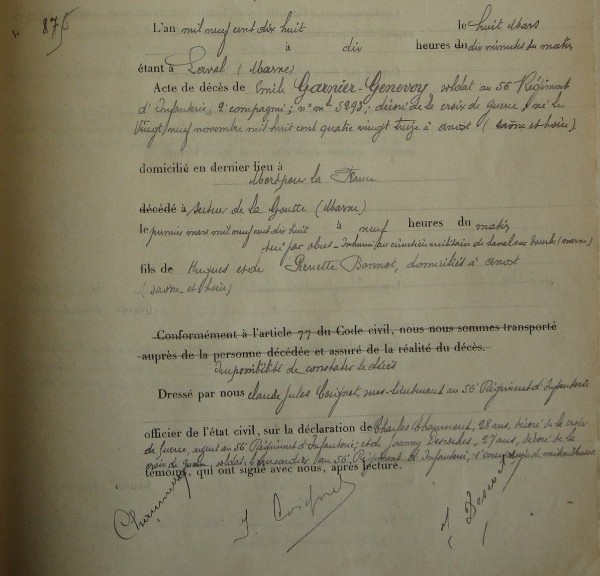 875
L'an mil neuf cent dix huit le huit Mars
à dix heures du dix minutes du matin
étant à Laval (Marne)
Acte de décès de Emile Garnier-Genevoy, soldat au 56e Régiment
d'Infanterie, 2e compagnie; n° mle 5293; décoré de la croix de guerre; né le
Vingt neuf novembre mil huit cent quatre vingt treize à Anost (Saône et Loire)
domicilié en dernier lieu à
Mort pour la France
décédé à secteur de la Goutte (Marne)
le premier mars mil neuf cent dix huit à neuf heures du matin
tué par obus - Inhumé au cimetière militaire de Laval sur Tourbe (Marne)
fils de Hugues et de Pierrette Bonnot, domiciliés à Anost
(Saône et Loire)
Conformément à l'article 77 du Code civil, nous nous sommes transporté
auprès de la personne décédée et assuré de la réalité du décès.
Impossibilité de constater le décès
Dressé par nous Claude Jules Coignet, sous-lieutenant au 56e Régiment d'Infanterie
officier de l'état civil, sur la déclaration de Charles 28 ans, décoré de la croix
de guerre, sergent au 56e Régiment d'Infanterie; et de Joanny Descombes, 27 ans, décoré de la
croix de guerre, soldat au 56e Régiment d'Infanterie, 2e compagnie de mitrailleuses
témoins, qui ont signé avec nous, après lecture.
J. Coignet